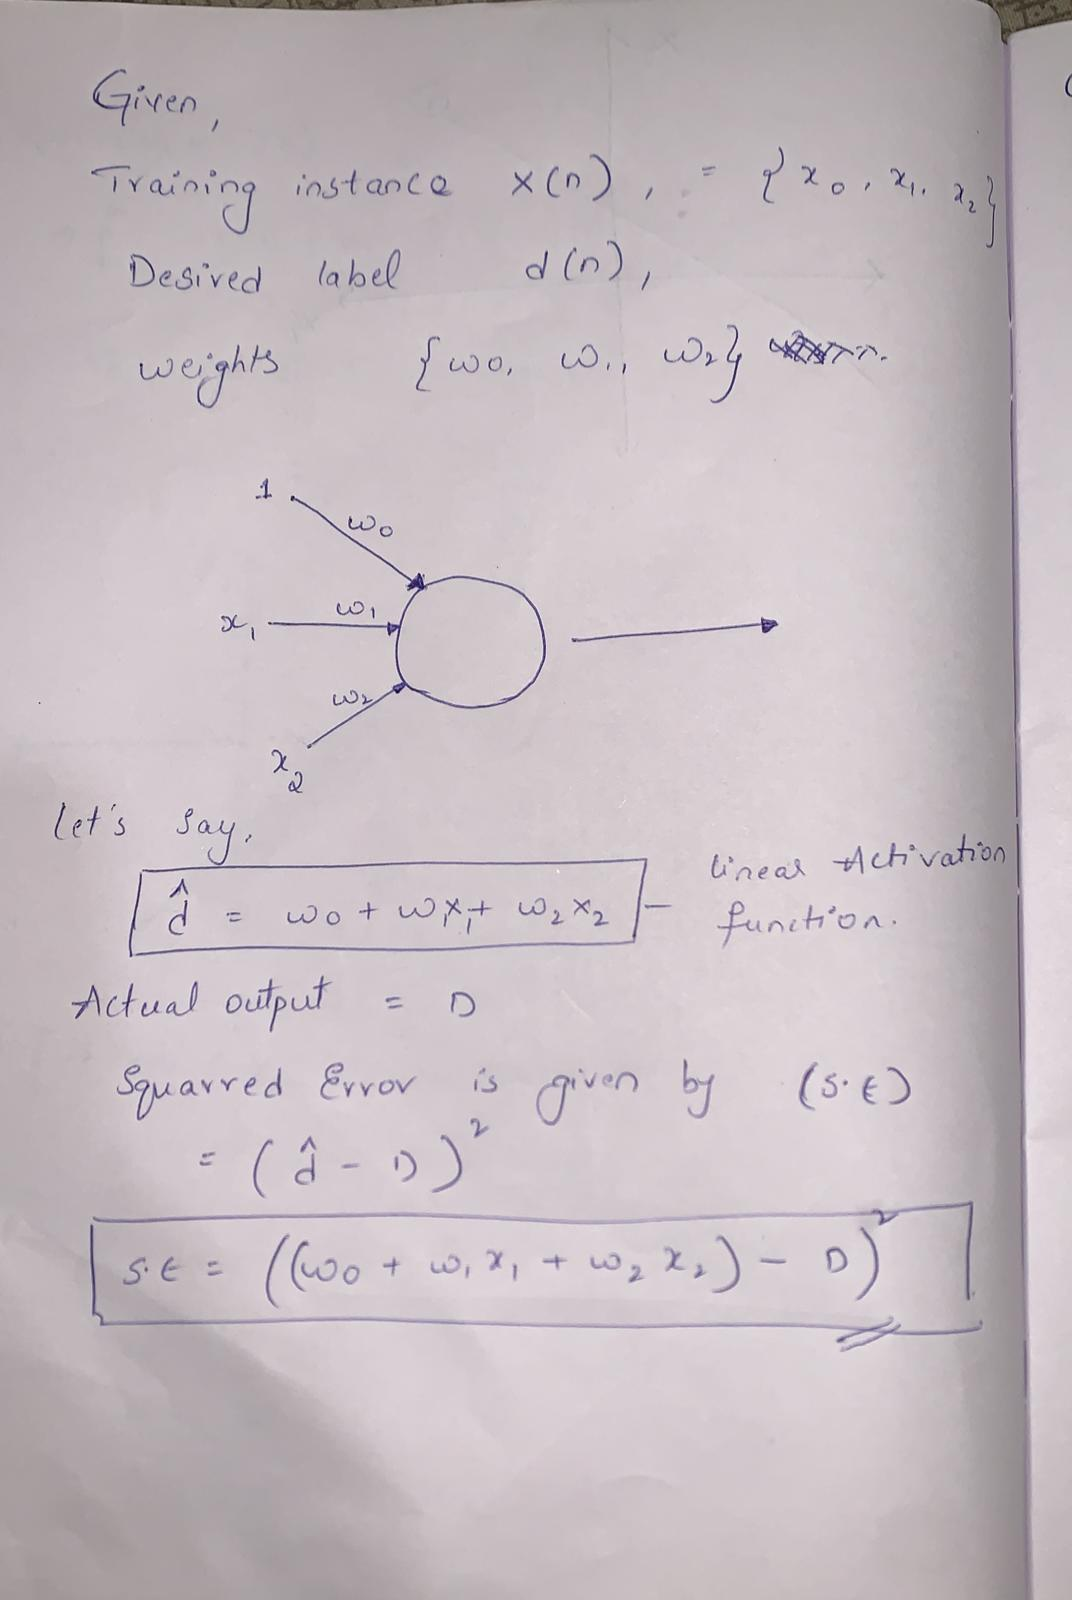 Given,
Training instance x(n), = {x0, x1, x2}
Desired label d(n),
weights {w0, w1, w2}
1
w0
x1
w1
w2
x2
let's say,
d̂ = w0 + w1x1 + w2x2 — linear Activation
function.
Actual output = D
Squarred Error is given by (S.E)
= (d̂ - D)²
S.E = ((w0 + w1x1 + w2x2) - D)²